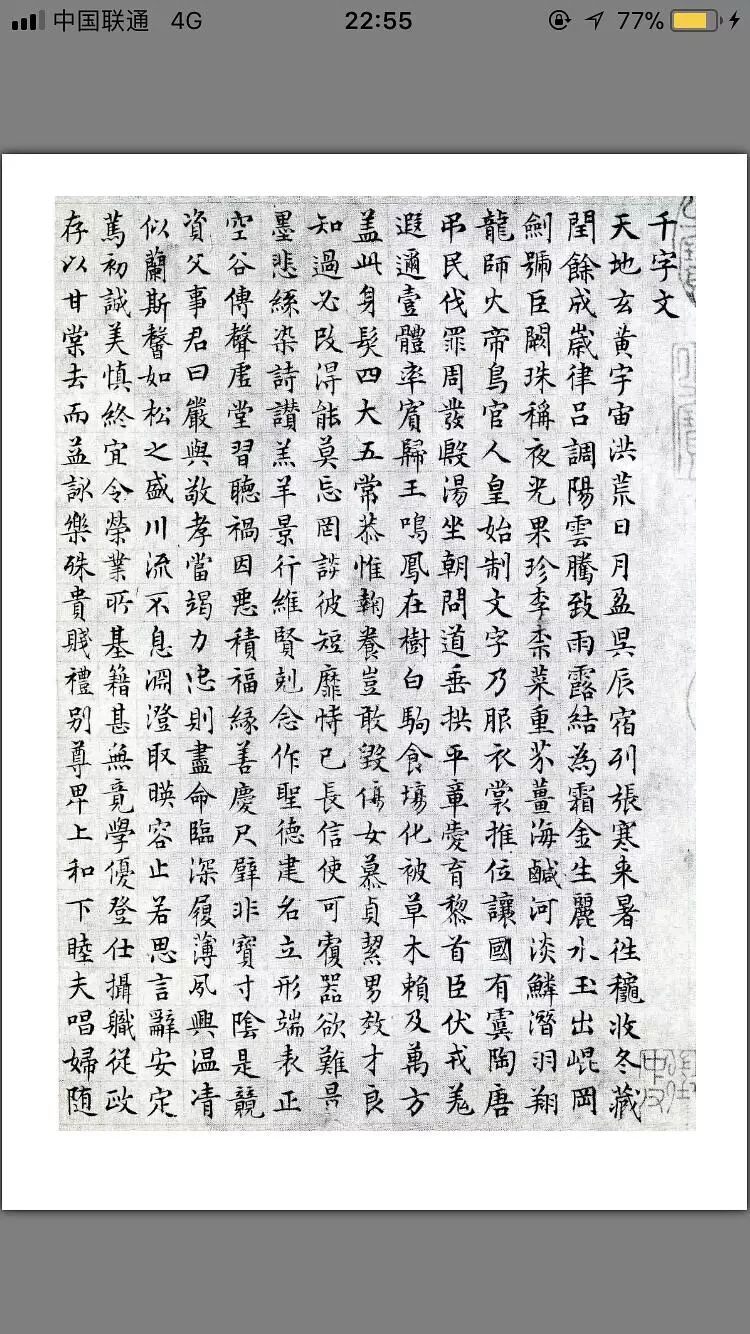 中国联通 4G 22:55 77%
千字文
天地玄黃宇宙洪荒日月盈昃辰宿列張寒来暑往穐收冬藏
閏餘成歲律呂調陽雲騰致雨露結為霜金生麗水玉出崐岡
劍號巨闕珠稱夜光果珍李柰菜重芥薑海鹹河淡鱗潛羽翔
龍師火帝鳥官人皇始制文字乃服衣裳推位讓國有虞陶唐
弔民伐罪周發殷湯坐朝問道垂拱平章愛育黎首臣伏戎羌
遐邇壹體率賓歸王鳴鳳在樹白駒食場化被草木賴及萬方
盖此身髮四大五常恭惟鞠養豈敢毀傷女慕貞絜男效才良
知過必改得能莫忘罔談彼短靡恃己長信使可覆器欲難量
墨悲絲染詩讚羔羊景行維賢剋念作聖德建名立形端表正
空谷傳聲虛堂習聽禍因惡積福緣善慶尺璧非寶寸陰是競
資父事君曰嚴與敬孝當竭力忠則盡命臨深履薄夙興温凊
似蘭斯馨如松之盛川流不息淵澄取暎容止若思言辭安定
篤初誠美慎終宜令榮業所基籍甚無竟學優登仕攝職從政
存以甘棠去而益詠樂殊貴賤禮别尊卑上和下睦夫唱婦随